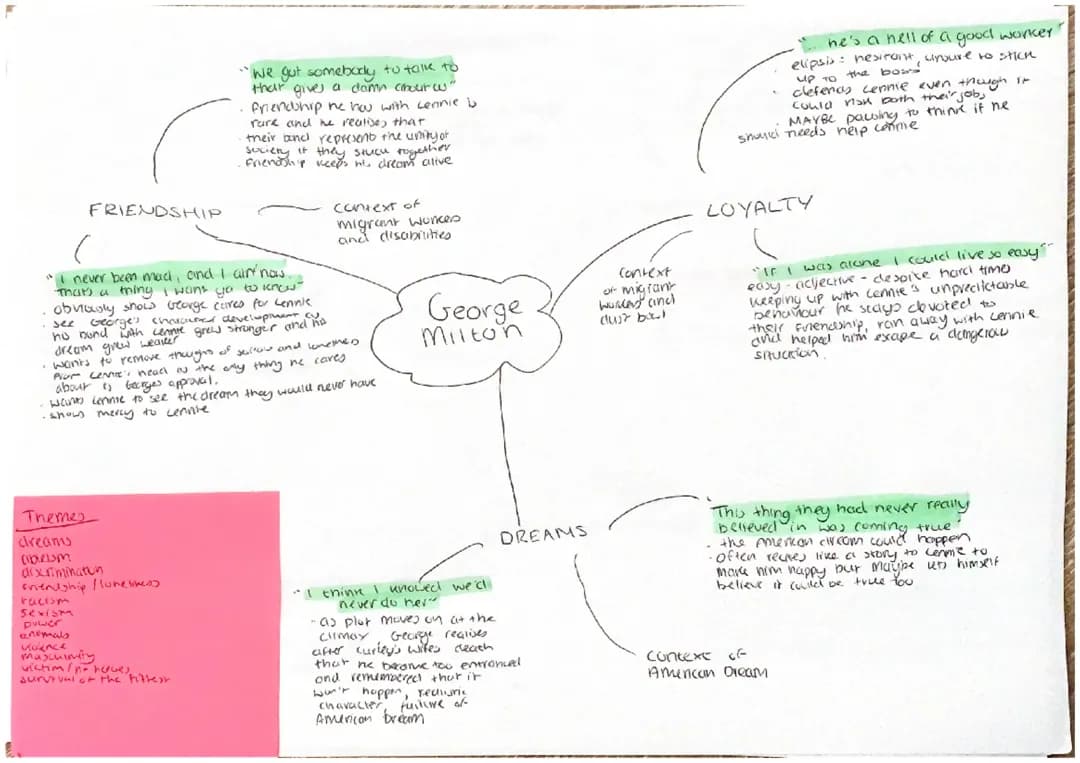 "We got somebody to talk to
that gives a damn about us"
· friendship he has with Lennie is
rare and he realises that
· their bond represent the unity of
society if they stuck together
· Friendship keeps his dream alive
FRIENDSHIP
context of
migrant workers
and disabilities
"I never been mad, and I ain't now.
Thats a thing I want ya to know"
· obviously show George cares for Lennie
· see George's character development as
his bond with Lennie grew stronger and his
dream grew weaker
· wants to remove thoughts of sorrow and loneliness
from Lennie's head as the only thing he cares
about is Georges approval.
· wants Lennie to see the dream they would never have
· shows mercy to Lennie
George
Milton
"... he's a hell of a good worker"
· elipsis: hesitant, unsure to stick
up to the boss
· defends Lennie even though it
could risk both their jobs
· MAYBE pausing to think if he
should needs help Lennie
LOYALTY
context
of migrant
workers and
dust bowl
"If I was alone I could live so easy"
easy - adjective - despite hard times
keeping up with Lennie's unpredictable
behaviour he stays devoted to
their friendship, ran away with Lennie
and helped him escape a dangerous
situation.
DREAMS
"This thing they had never really
believed in was coming true"
· the American dream could happen
· often recites like a story to Lennie to
make him happy but maybe lets himself
believe it could be true too
context of
American Dream
"I think I knowed we'd
never do her"
- as plot moves on at the
climax, George realises
after Curley's wifes death
that he became too entranced
and remembered that it
won't happen, realistic
character, failure of
American Dream
Themes
dreams
ableism
discrimination
friendship/loneliness
racism
sexism
power
animals
violence
masculinity
victim/
survival of the fittest